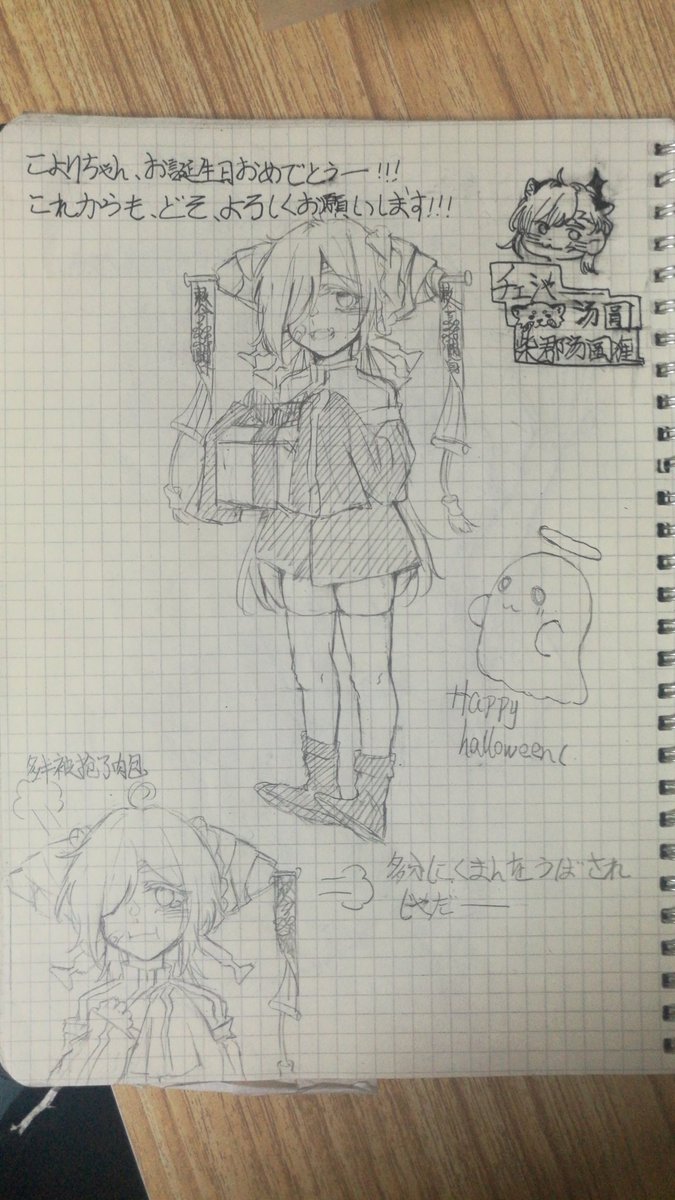 こよりちゃん、お誕生日おめでとうー!!!
これからも、どそ、よろしくお願いします!!!
チェ池
汤圆
柴郡汤圆狸
Happy
halloween(
多半被抢了肉包
多分にくまんをうばされ
じゃだー